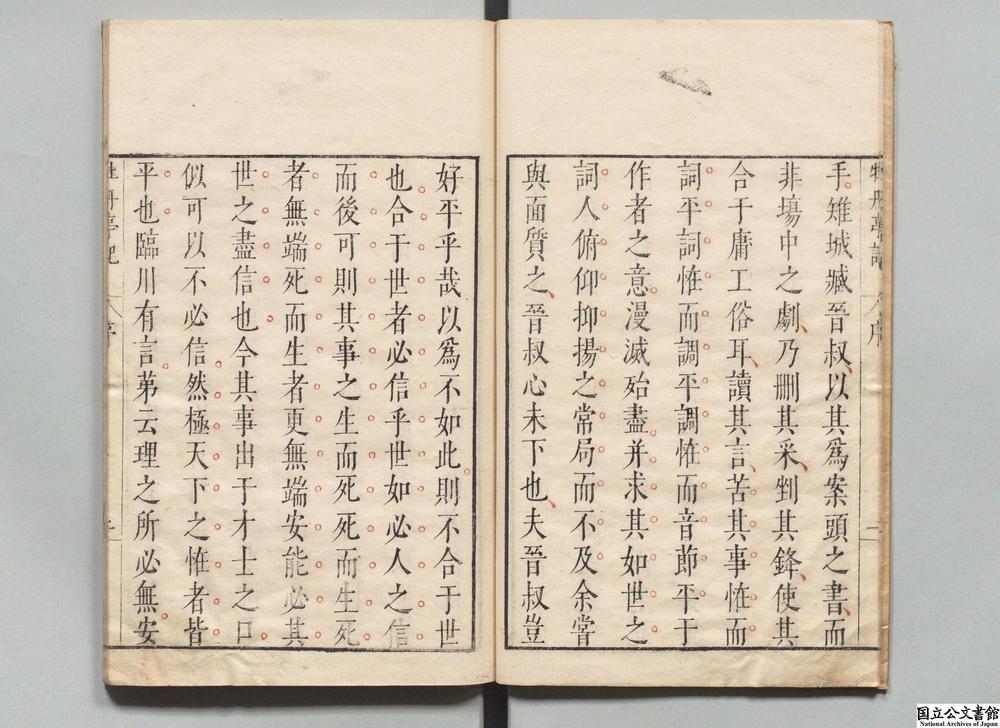 牡丹亭記 序 一
手雉城臧晉叔以其爲案頭之書而
非塲中之劇乃刪其采剉其鋒使其
合于庸工俗耳讀其言苦其事恠而
詞平詞恠而調平調恠而音節平于
作者之意漫滅殆盡并求其如世之
詞人俯仰抑揚之常局而不及余嘗
與面質之晉叔心未下也夫晉叔豈
好平乎哉以爲不如此則不合于世
也合于世者必信乎世如必人之信
而後可則其事之生而死死而生死
者無端死而生者更無端安能必其
世之盡信也今其事出于才士之口
似可以不必信然極天下之恠者皆
平也臨川有言苐云理之所必無安
牡丹亭記 序
国立公文書館
National Archives of Japan